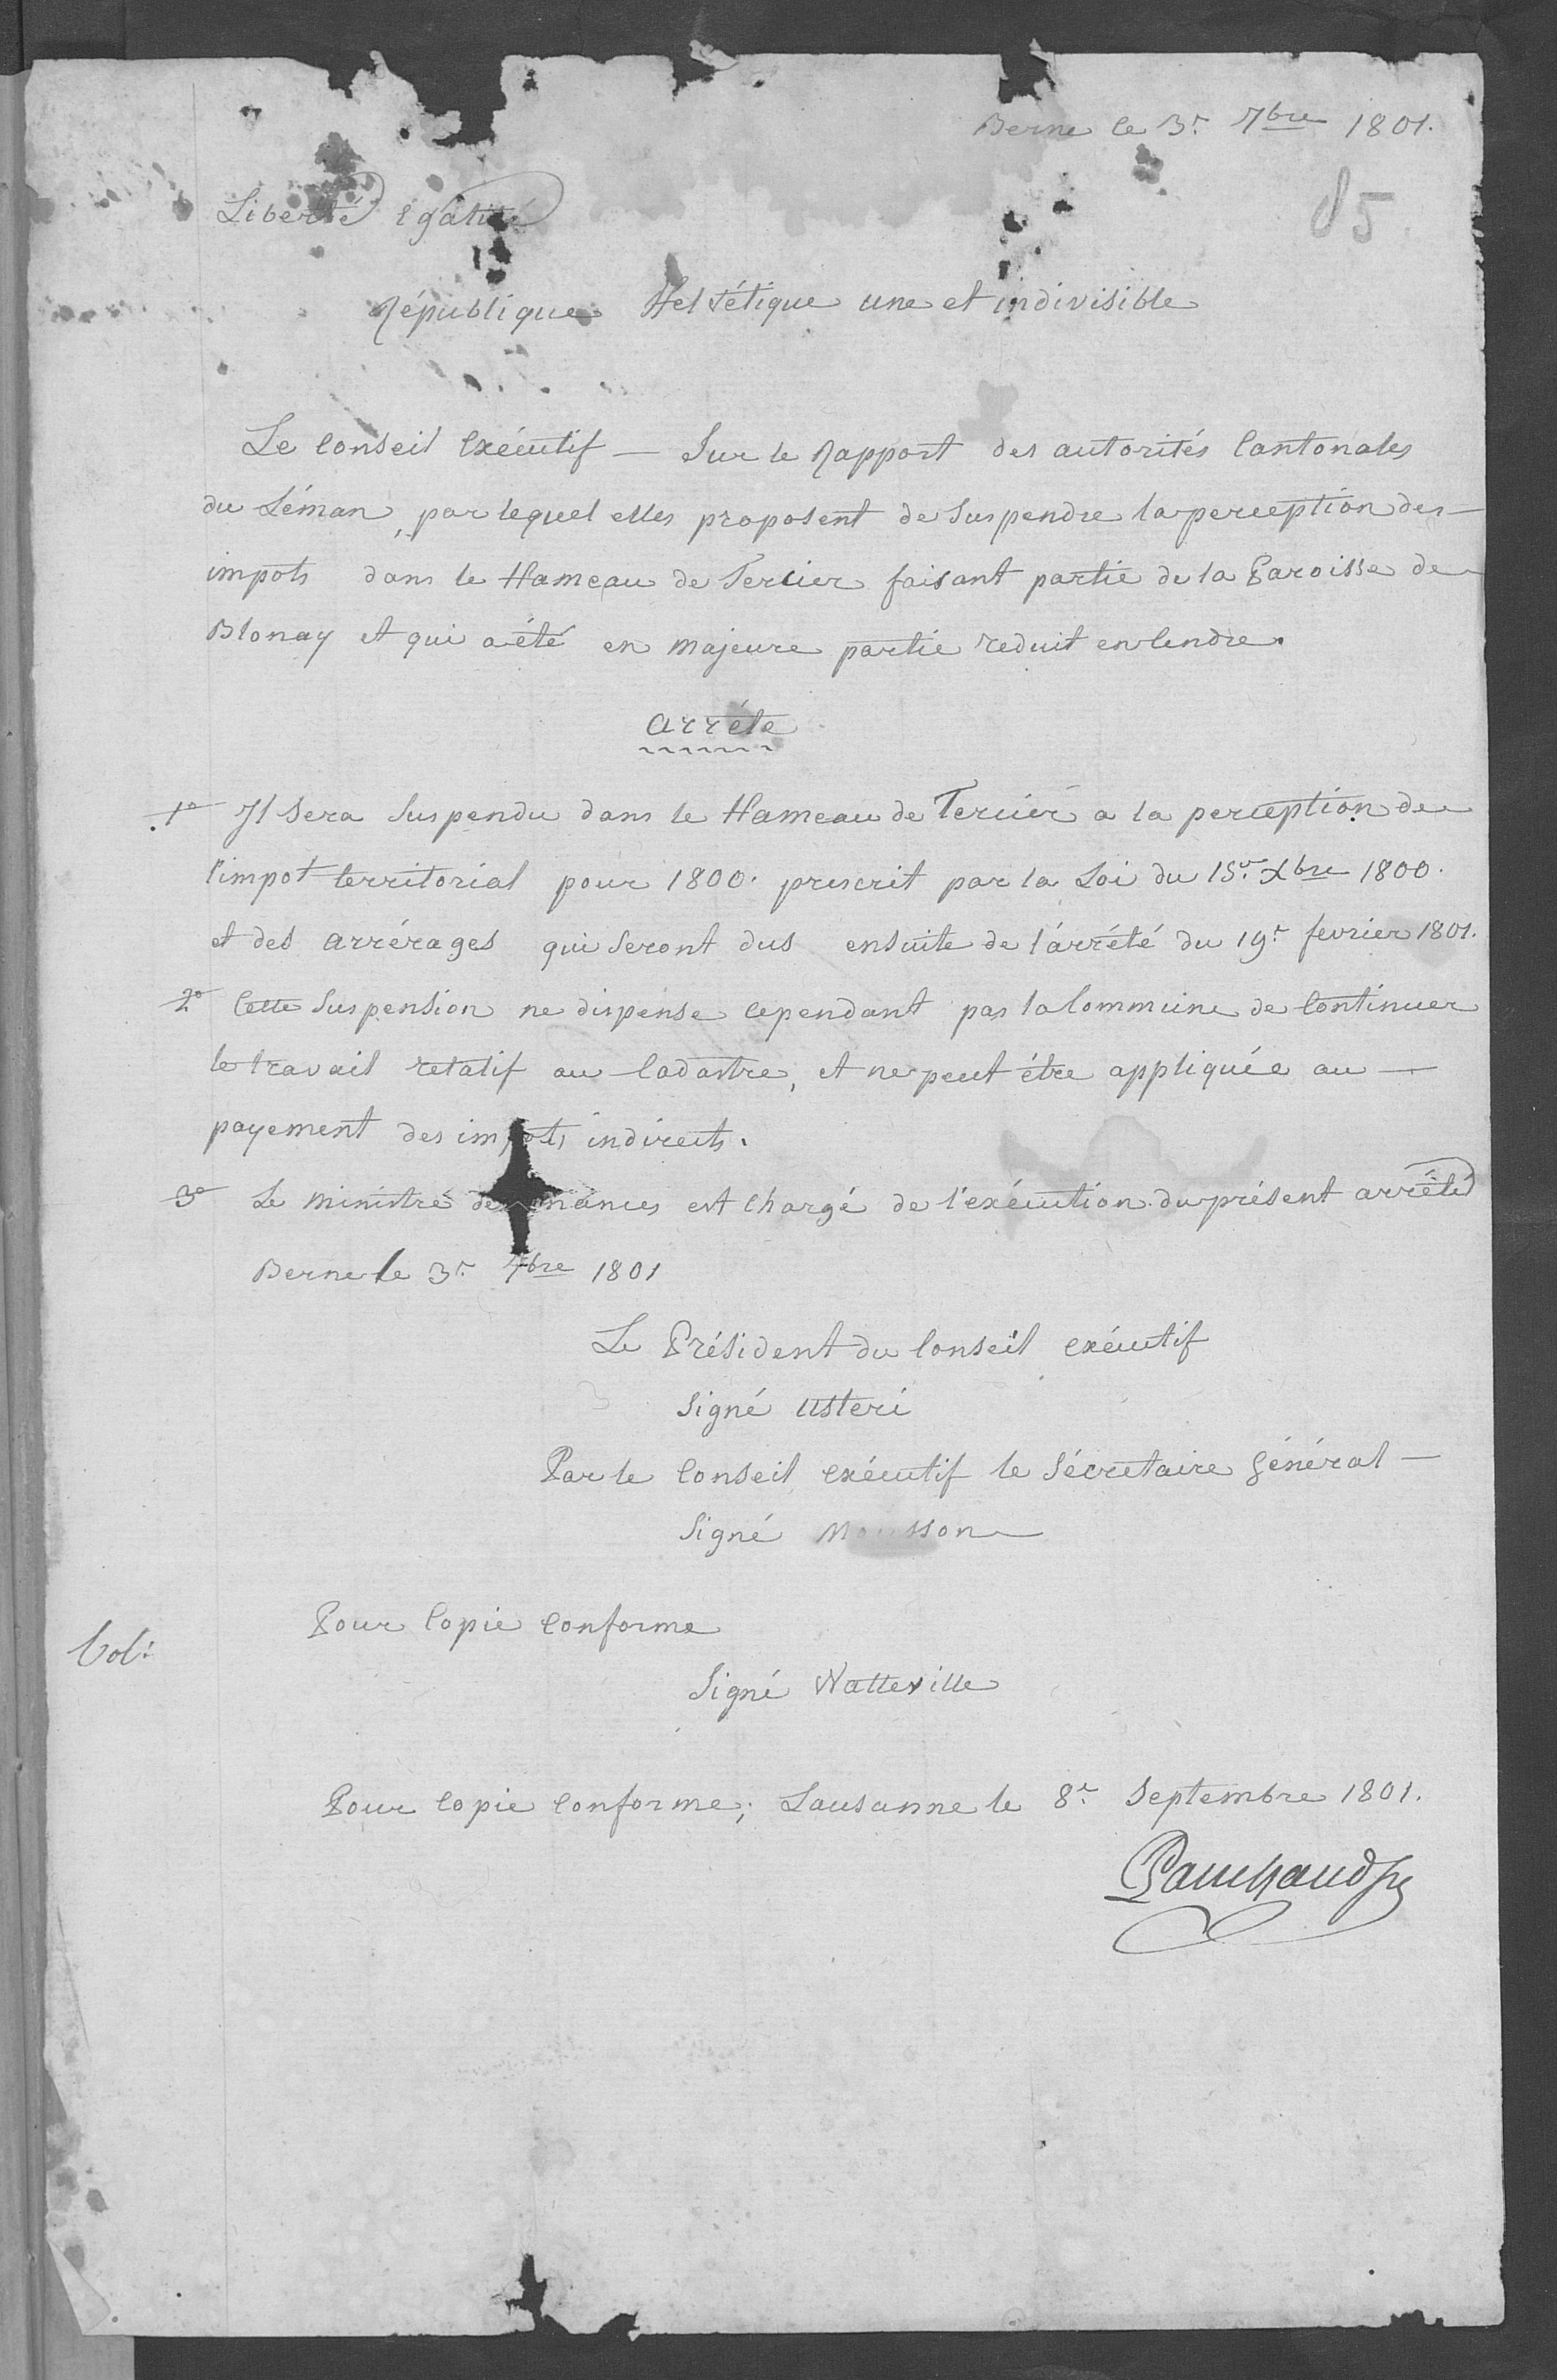 Berne le 3.r 7bre 1801.
85.
Liberté Egalité
République Helvétique une et indivisible
Le Conseil Exécutif — Sur le Rapport des autorités Cantonales
du Léman, par lequel elles proposent de Suspendre la perception des —
impots dans le Hameau de Tercier faisant partie de la Paroisse de
Blonay et qui a été en majeure partie reduit en Cendre.
Arréte
1o Il Sera Suspendu dans le Hameau de Tercier a la perception de
l'impot territorial pour 1800. prescrit par la Loi du 15.r Xbre 1800.
et des arrérages qui Seront dus ensuite de l'arrété du 19.r fevrier 1801.
2o Cette Suspension ne dispense cependant pas la Commune de Continuer
le travail relatif au Cadastre, et ne peut étre appliquée au —
payement des impots indirects.
3o Le Ministre de nances est Chargé de l'exécution du présent arrété
Berne le 3.r 7bre 1801
Le Président du Conseil exécutif
Signé Usteri
Par le Conseil exécutif le Sécretaire Général —
Signé Mousson
Pour Copie Conforme
Col:
Signé Watteville
Pour copie Conforme; Lausanne le 8.r Septembre 1801.
Panchaud